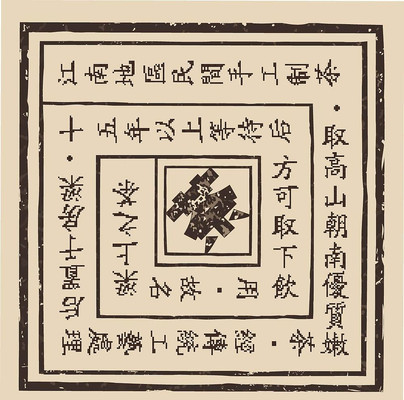 江南地區民間手工制茶·
取高山朝南優質嫩
茶·經傳統工藝處理
后置于房梁·
十五年以上等待后
方可取下飲
用·故名
梁上公茶